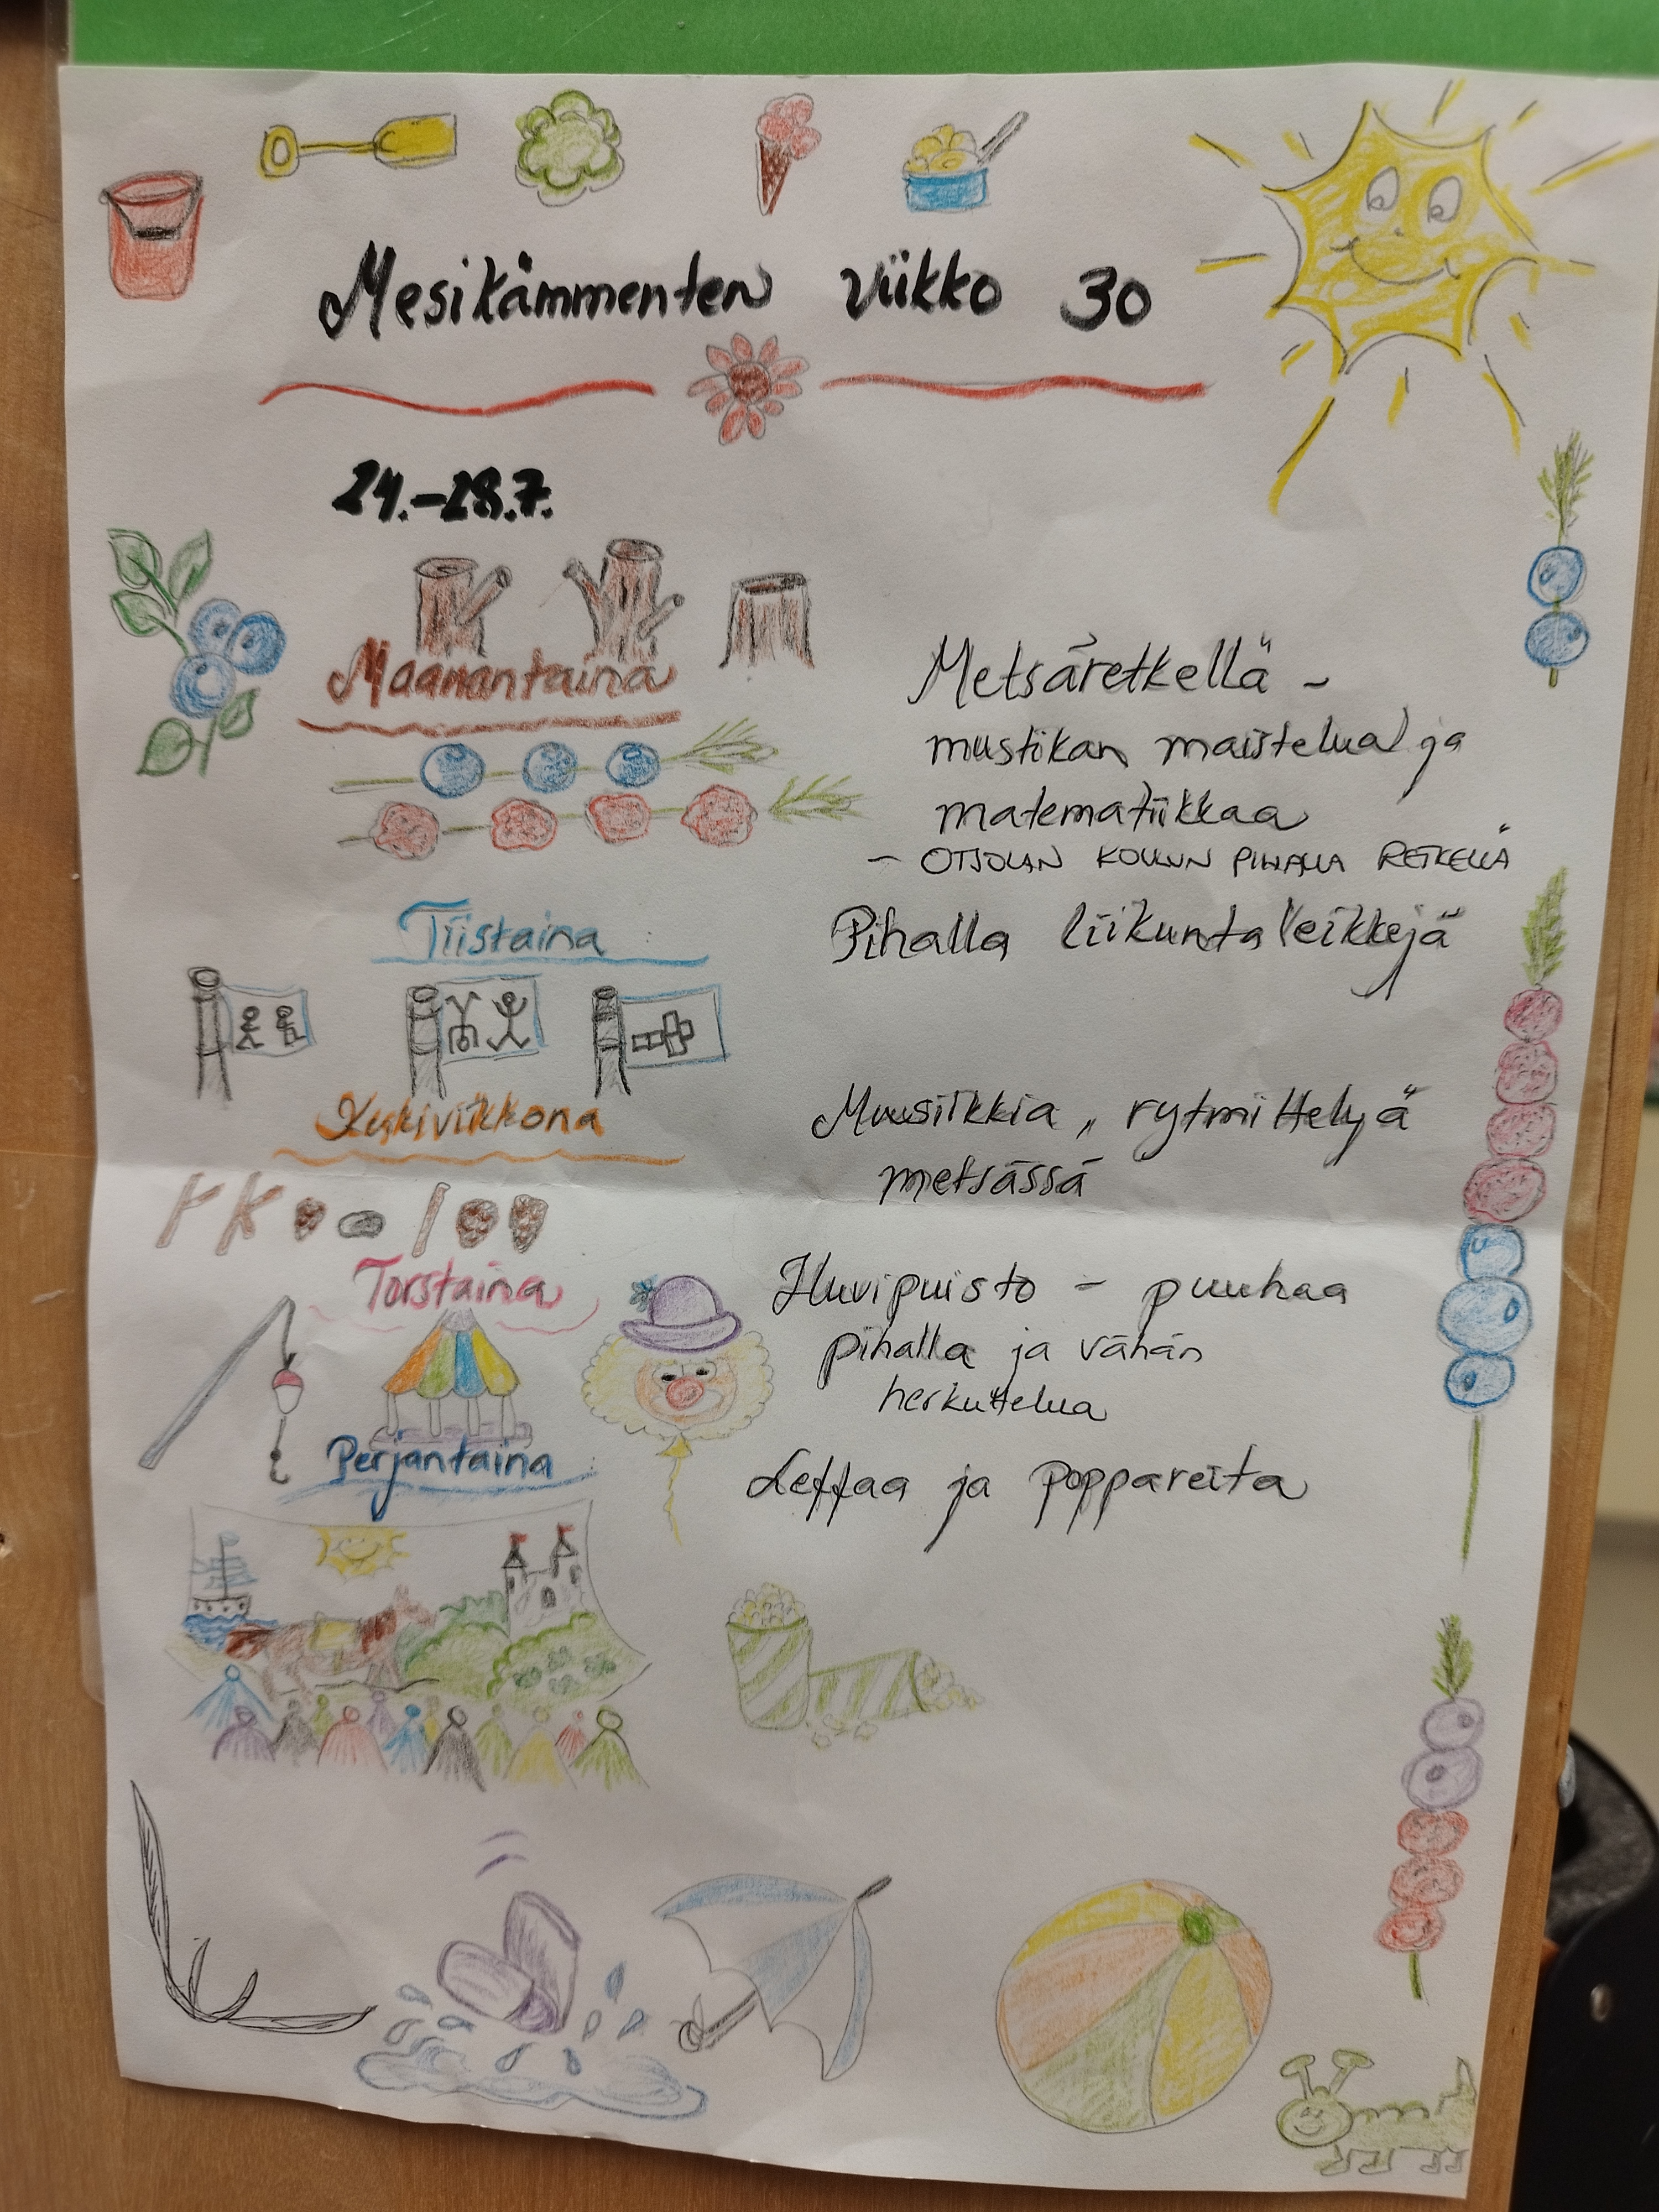 Mesikämmenten viikko 30
24.-28.7.
Maanantaina
Metsäretkellä -
mustikan maistelua ja
matematiikkaa
- OTSOLAN KOULUN PIHALLA RETKELLÄ
Tiistaina
Pihalla liikuntaleikkejä
Keskiviikkona
Muusiikkia, rytmittelyä
metsässä
Torstaina
Huvipuisto - puuhaa
pihalla ja vähän
herkuttelua
Perjantaina
Leffaa ja poppareita